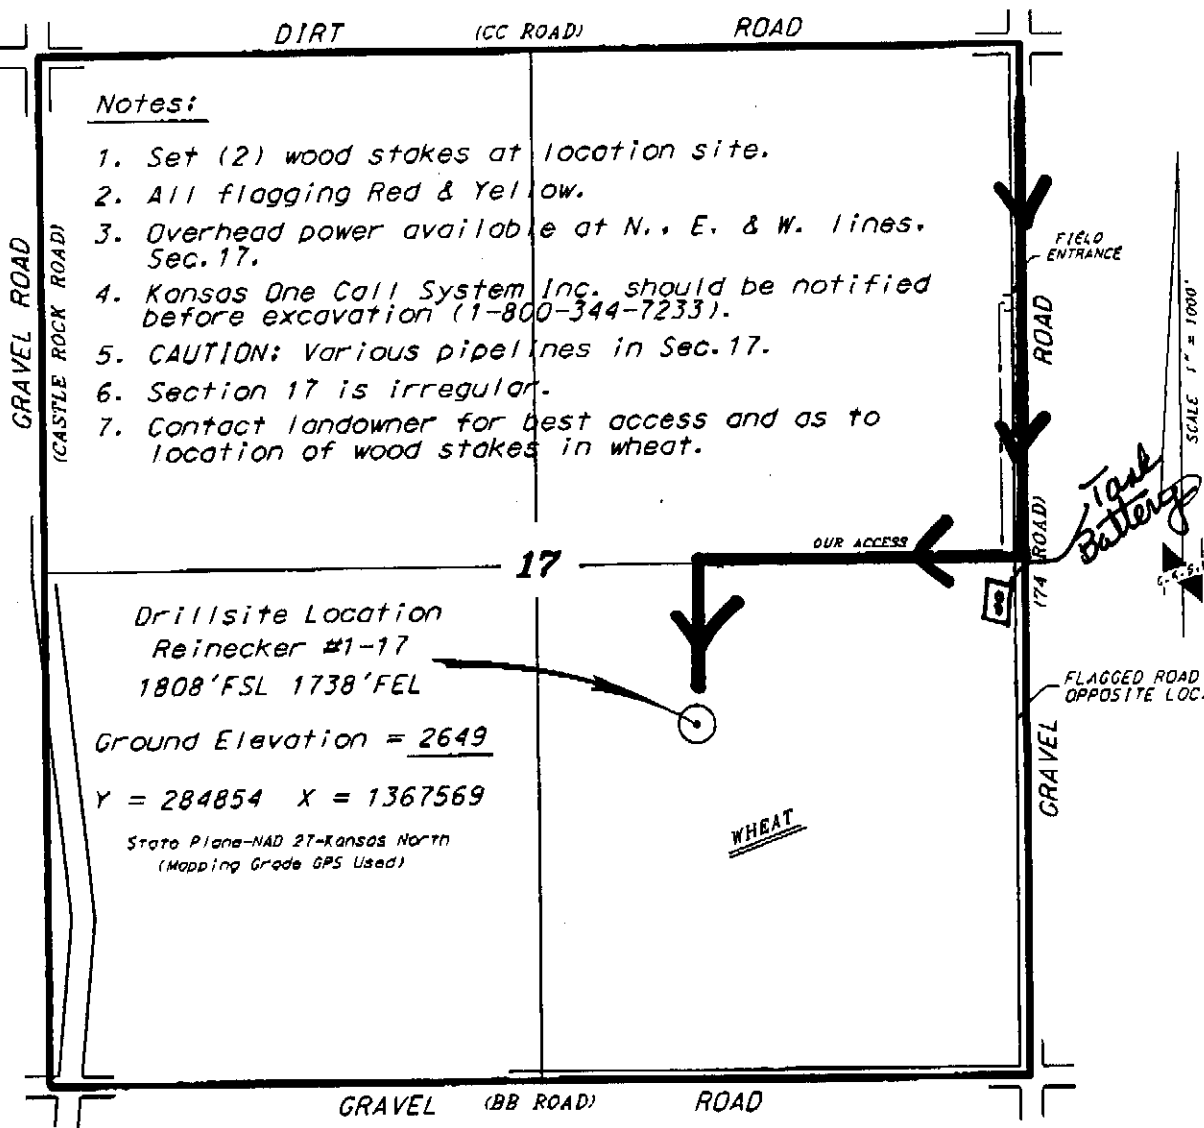 DIRT (CC ROAD) ROAD
Notes:
1. Set (2) wood stakes at location site.
2. All flagging Red & Yellow.
3. Overhead power available at N., E. & W. lines,
Sec. 17.
4. Kansas One Call System Inc. should be notified
before excavation (1-800-344-7233).
5. CAUTION: Various pipelines in Sec. 17.
6. Section 17 is irregular.
7. Contact landowner for best access and as to
location of wood stakes in wheat.
GRAVEL ROAD
(CASTLE ROCK ROAD)
FIELD
ENTRANCE
ROAD
SCALE 1" = 1000'
Tank
Battery
(74 ROAD)
OUR ACCESS
17
Drillsite Location
Reinecker #1-17
1808'FSL 1738'FEL
Ground Elevation = 2649
Y = 284854 X = 1367569
State Plane-NAD 27-Kansas North
(Mapping Grade GPS Used)
FLAGGED ROAD
OPPOSITE LOC.
GRAVEL
WHEAT
GRAVEL (BB ROAD) ROAD